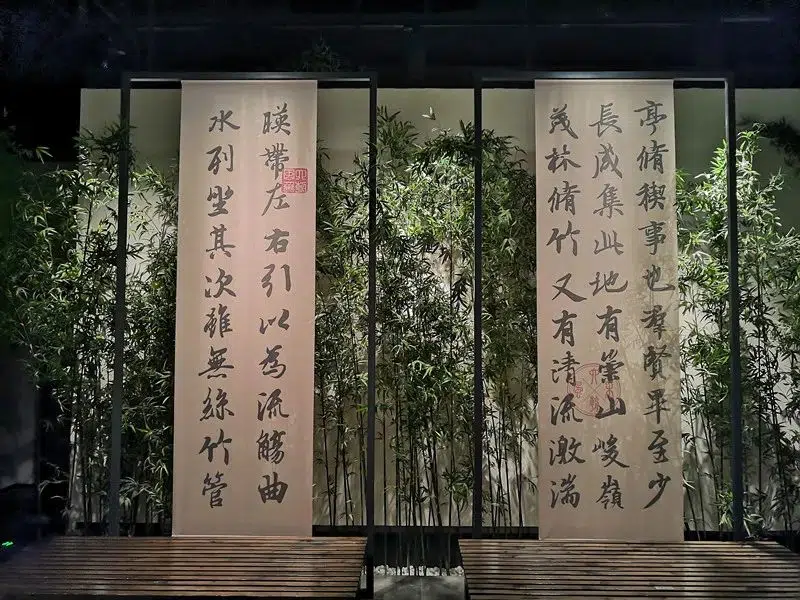 亭脩稧事也羣賢畢至少
長咸集此地有崇山峻嶺
茂林脩竹又有清流激湍
暎帶左右引以為流觴曲
水列坐其次雖無絲竹管